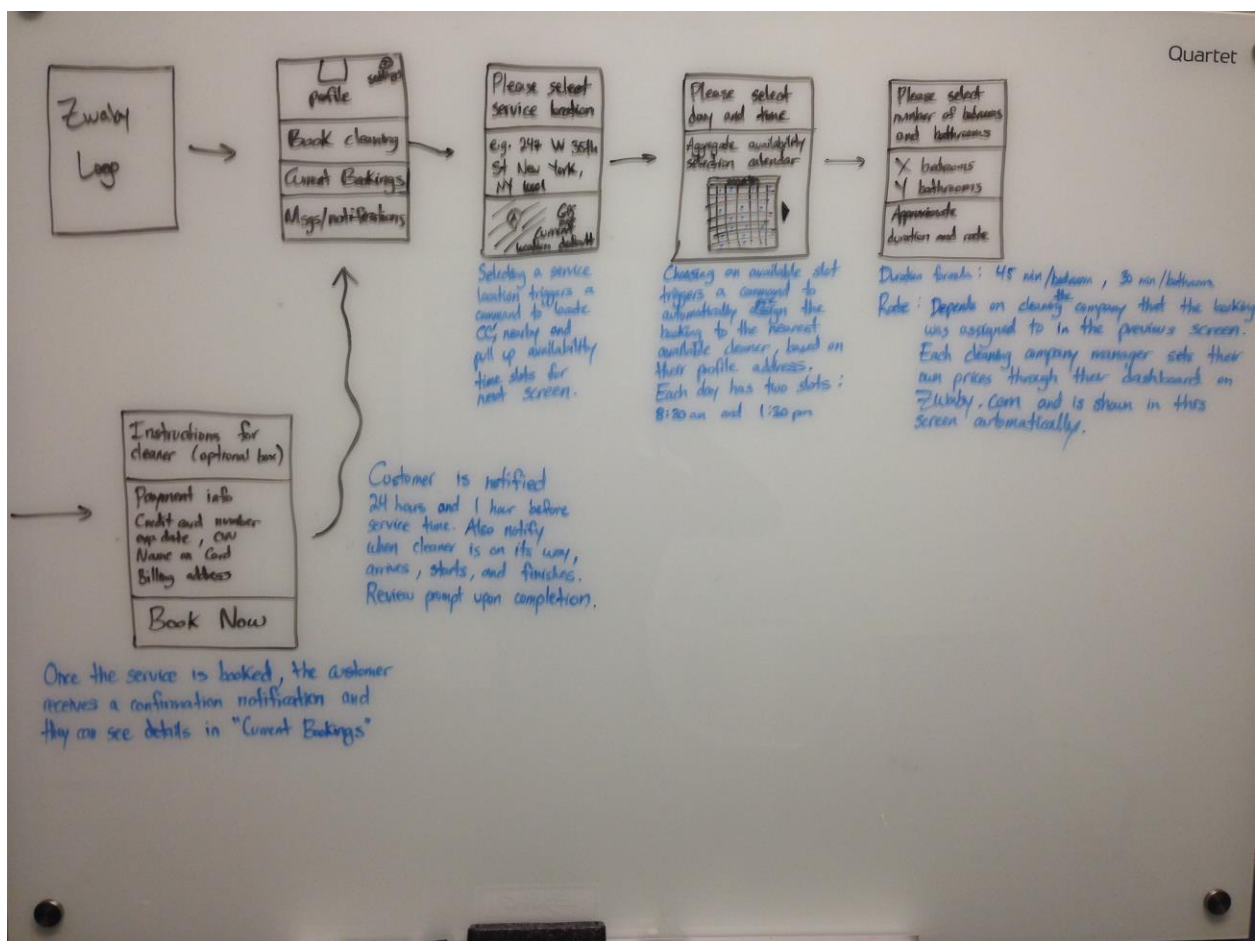 Quartet
Zwaby
Logo
settings
profile
Book cleaning
Current Bookings
Msgs/notifications
Please select
service location
e.g. 247 W 35th
St New York,
NY
GPS
current
location default
Selecting a service
location triggers a
command to locate
CCs nearby and
pull up availability
time slots for
next screen.
Please select
day and time
Aggregate availability
selection calendar
Choosing an available slot
triggers a command to
automatically assign the
booking to the nearest
available cleaner, based on
their profile address.
Each day has two slots:
8:30 am and 1:30 pm
Please select
number of bedrooms
and bathrooms
X bedrooms
Y bathrooms
Approximate
duration and rate
Duration formula: 45 min/bedroom, 30 min/bathroom
Rate: Depends on the cleaning company that the booking
was assigned to in the previous screen.
Each cleaning company manager sets their
own prices through their dashboard on
Zwaby.com and is shown in this
screen automatically.
Instructions for
cleaner (optional box)
Payment info
Credit card number
exp date, CVV
Name on Card
Billing address
Book Now
Once the service is booked, the customer
receives a confirmation notification and
they can see details in "Current Bookings"
Customer is notified
24 hours and 1 hour before
service time. Also notify
when cleaner is on its way,
arrives, starts, and finishes.
Review prompt upon completion.